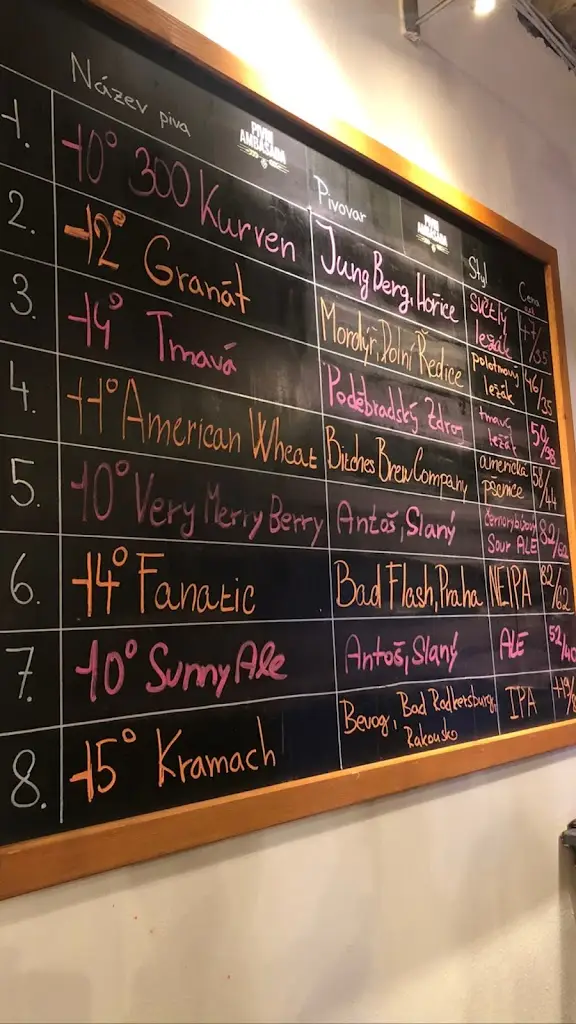 Název piva PIVNÍ AMBASÁDA Pivovar PIVNÍ AMBASÁDA Styl Cena
1. 10° 300 Kurven JungBerg, Hořice světlý ležák
2. 12° Granát Mordýř, Dolní Ředice polotmavý ležák 46/35
3. 14° Tmavá Poděbradský Zdroj tmavý ležák 50/38
4. 11° American Wheat Bitches Brew Company americká pšenice 58/44
5. 10° Very Merry Berry Antoš, Slaný Sour ALE 82/62
6. 14° Fanatic Bad Flash, Praha NEIPA 82/62
7. 10° Sunny Ale Antoš, Slaný ALE 52/40
8. 15° Kramach Bevog, Bad Radkersburg, Rakousko IPA